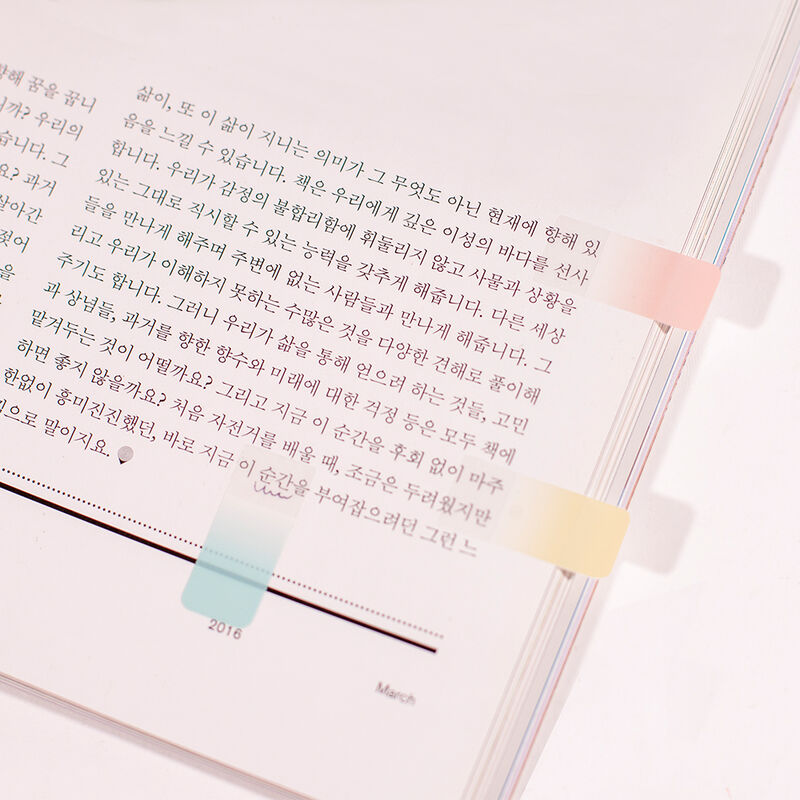 향해 꿈을 꿉니
니까? 우리의
습니다. 그
요? 과거
살아간
젖어
을
한없이 흥미진진했던, 바로 지금 이 순간을 부여잡으려던 그런 느
낌으로 말이지요.
삶이, 또 이 삶이 지니는 의미가 그 무엇도 아닌 현재에 향해 있
음을 느낄 수 있습니다. 책은 우리에게 깊은 이성의 바다를 선사
합니다. 우리가 감정의 불합리함에 휘둘리지 않고 사물과 상황을
있는 그대로 직시할 수 있는 능력을 갖추게 해줍니다. 다른 세상
들을 만나게 해주며 주변에 없는 사람들과 만나게 해줍니다. 그
리고 우리가 이해하지 못하는 수많은 것을 다양한 견해로 풀이해
주기도 합니다. 그러니 우리가 삶을 통해 얻으려 하는 것들, 고민
과 상념들, 과거를 향한 향수와 미래에 대한 걱정 등은 모두 책에
맡겨두는 것이 어떨까요? 그리고 지금 이 순간을 후회 없이 마주
하면 좋지 않을까요? 처음 자전거를 배울 때, 조금은 두려웠지만
2016
March